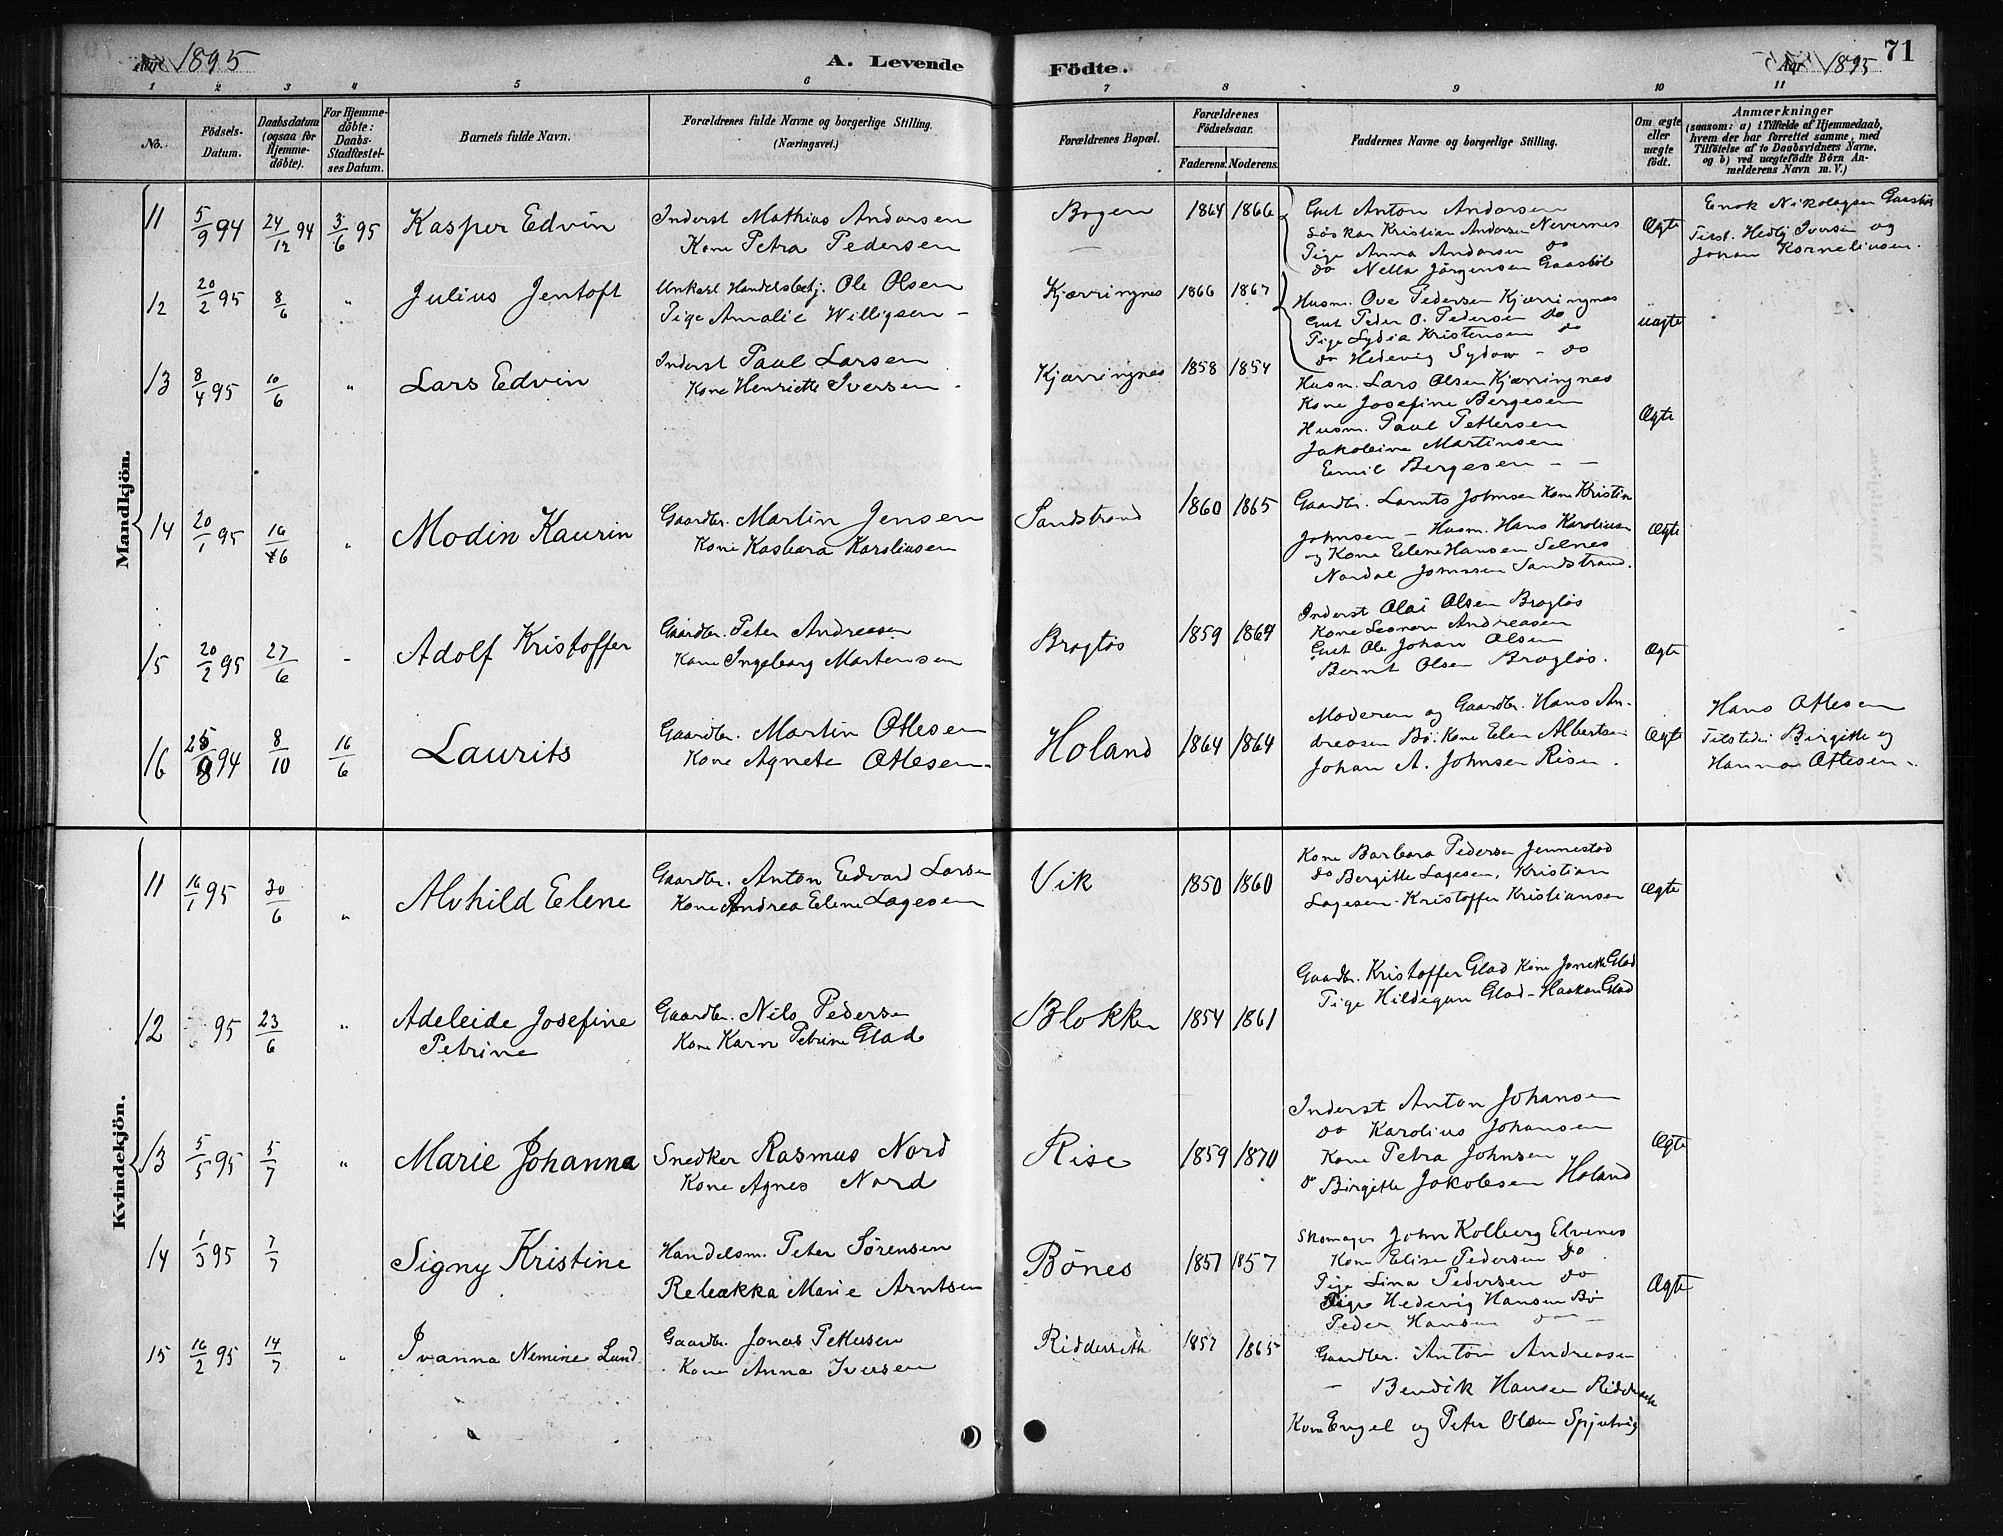 Aar 1895
A. Levende
Födte.
Aar 1895
71
1 2 3 4 5 6 7 8 9 10 11
No.
Födsels-
Datum.
Daabsdatum
(ogsaa for
Hjemme-
döbte).
For Hjemme-
döbte:
Daabs-
Stadfæstel-
ses Datum.
Barnets fulde Navn.
Forældrenes fulde Navne og borgerlige Stilling.
(Næringsvei.)
Forældrenes Bopæl.
Forældrenes
Födselsaar.
Faderens. Moderens.
Faddernes Navne og borgerlige Stilling.
Om ægte
eller
uægte
födt.
Anmærkninger
(saasom: a) i Tilfælde af Hjemmedaab,
hvem der har forrettet samme, med
Tilföielse af to Daabsvidners Navne.
og b) ved uægtefödte Börn An-
melderens Navn m. V.)
Mandkjön.
11 5/9 94 24/12 94 3/6 95 Kasper Edvin
Inderst Mathias Andorsen
Kone Petra Pedersen
Bogen 1864 1866
Gut Anton Andorsen
Søskar Kristian Andorsen Nevernes
Pige Anna Andorsen do
do Nella Jörgensen Gaasböl
Ægte
Enok Nikolaysen Gaasböl
Tilst. Hedlj Iversen og
Johan Korneliusen.
12 20/2 95 8/6 " Julius Jentoft
Unkarl Handelsbetj. Ole Olsen
Pige Amalie Willigsen -
Kjærringnes 1866 1867
Husm. Ove Pedersen Kjærringnes
Gut Peder O. Pedersen do
Pige Lydia Kristensen do
do Hedevig Sydow - do
uægte
13 8/4 95 10/6 " Lars Edvin
Inderst Paul Larsen
Kone Henriette Iversen -
Kjærringnes 1858 1854
Husm. Lars Olsen Kjærringnes
Kone Josefine Bergesen
Husm. Paul Pettersen
Jakobine Martinsen
Emil Bergesen - -
Ægte
14 20/1 95 16/6 " Modin Kaurin
Gaardbr. Martin Jensen
Kone Kasbara Karoliusen
Sandstrand 1860 1865
Gaardbr. Lornts Johnsen Kone Kristin
Johnsen - Husm. Hans Karoliusen
og Kone Elene Hansen Selnes
Nordal Johnsen Sandstrand.
Ægte
15 20/2 95 27/6 - Adolf Kristoffer
Gaardbr. Peter Andreasen
Kone Ingeborg Martensen
Brogløs 1859 1864
Inderst Olai Olsen Brogløs
Kone Leonore Andreasen
Gut Ole Johan Olsen
Bernt Olsen Brogløs.
Ægte
16 25/8 94 8/10 16/6 Laurits
Gaardbr. Martin Ottesen
Kone Agnete Ottesen -
Holand 1864 1864
Moderen og Gaardbr. Hans An-
dreasen Bö. Kone Elen Albertsen
Johan A. Johnsen Risen.
Ægte
Hans Ottesen
Tilstede: Birgitte og
Hanna Ottesen -
Kvindekjön.
11 16/1 95 30/6 " Alvhild Elene
Gaardbr. Anton Edvard Larsen
Kone Andrea Elene Lagesen
Vik 1850 1860
Kone Barbara Pedersen Jennestad
do Bergitte Lagesen, Kristian
Lagesen - Kristoffer Kristiansen
Ægte
12 95 23/6 " Adeleide Josefine
Petrine
Gaardbr. Nils Pedersen
Kone Karn Petrine Glad
Blokken 1854 1861
Gaardbr. Kristoffer Glad Kone Jonette Glad
Pige Hildegun Glad - Haakon Glad
13 5/5 95 5/7 " Marie Johanna
Snedker Rasmus Nord
Kone Agnes Nord
Rise 1859 1870
Inderst Anton Johansen
do Karolius Johansen
Kone Petra Johnsen
do Birgitte Jakobsen Holand
Ægte
14 1/3 95 7/7 Signy Kristine
Handelsm. Peter Sørensen
Rebækka Marie Arntsen
Bönes 1857 1857
Skomager John Kolberg Elvenes
Kone Elise Pedersen do
Pige Lina Pedersen do
Pige Hedevig Hansen Bö
Peder Hansen do -
Ægte
15 16/2 95 14/7 " Ivanna Nemine Lund
Gaardbr. Jonas Pettersen
Kone Anna Iversen
Ridderseth 1857 1865
Gaardbr. Anton Andreasen
- Bendik Hansen Ridderseth
Kone Engel og Peter Olsen Spjutvig